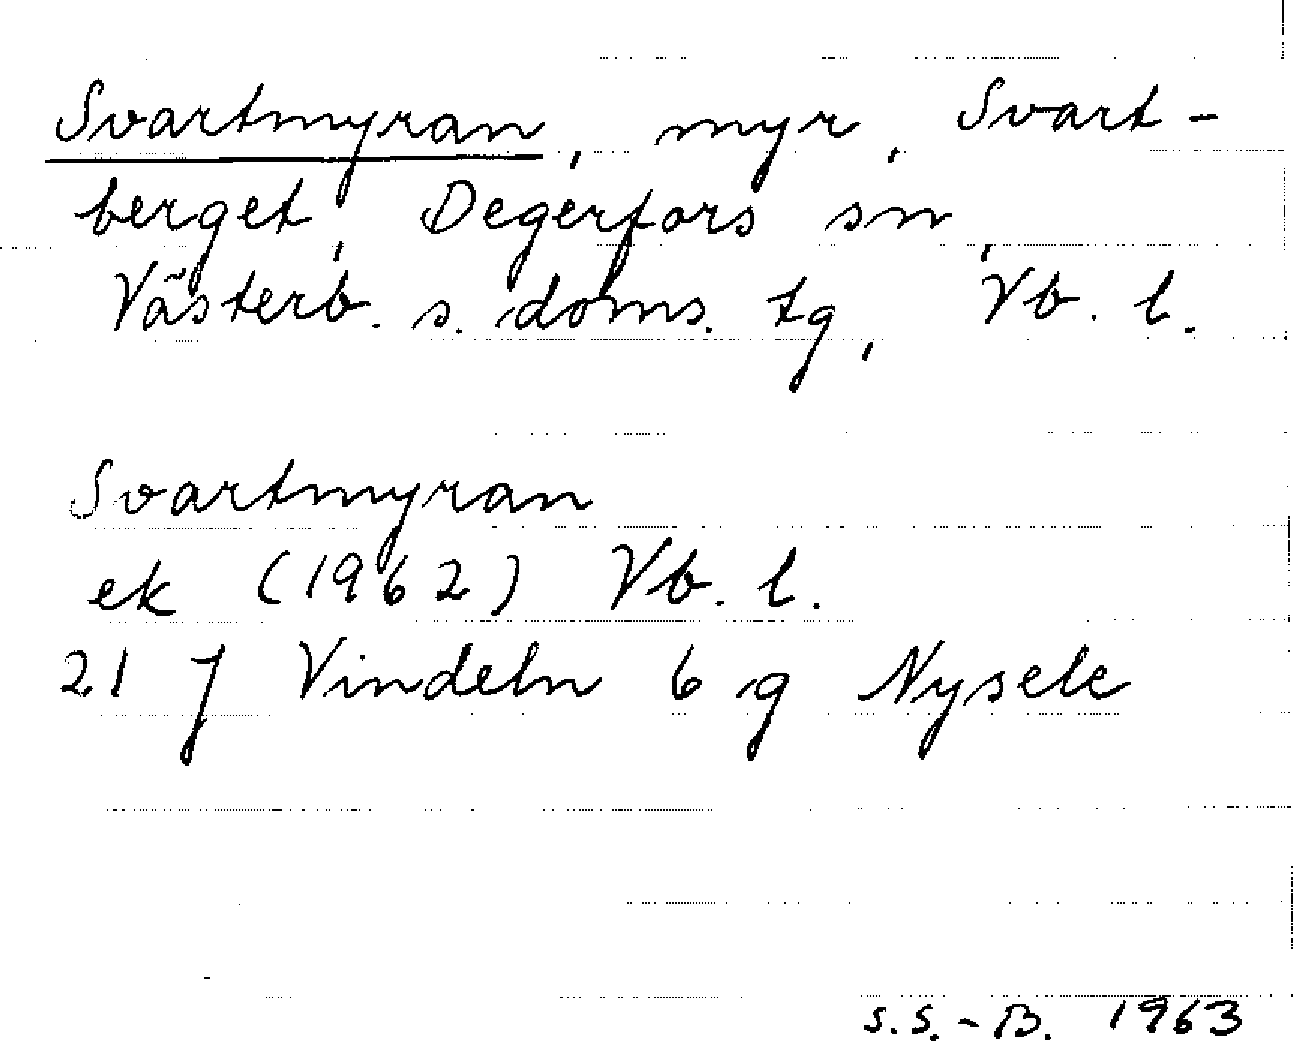 Svartmyran, myr, Svart-
berget, Degerfors sn,
Västerb. s. doms. tg, Vb. l.
Svartmyran
ek (1962) Vb. l.
21 J Vindeln 6 g Nysele
S.S.-B. 1963